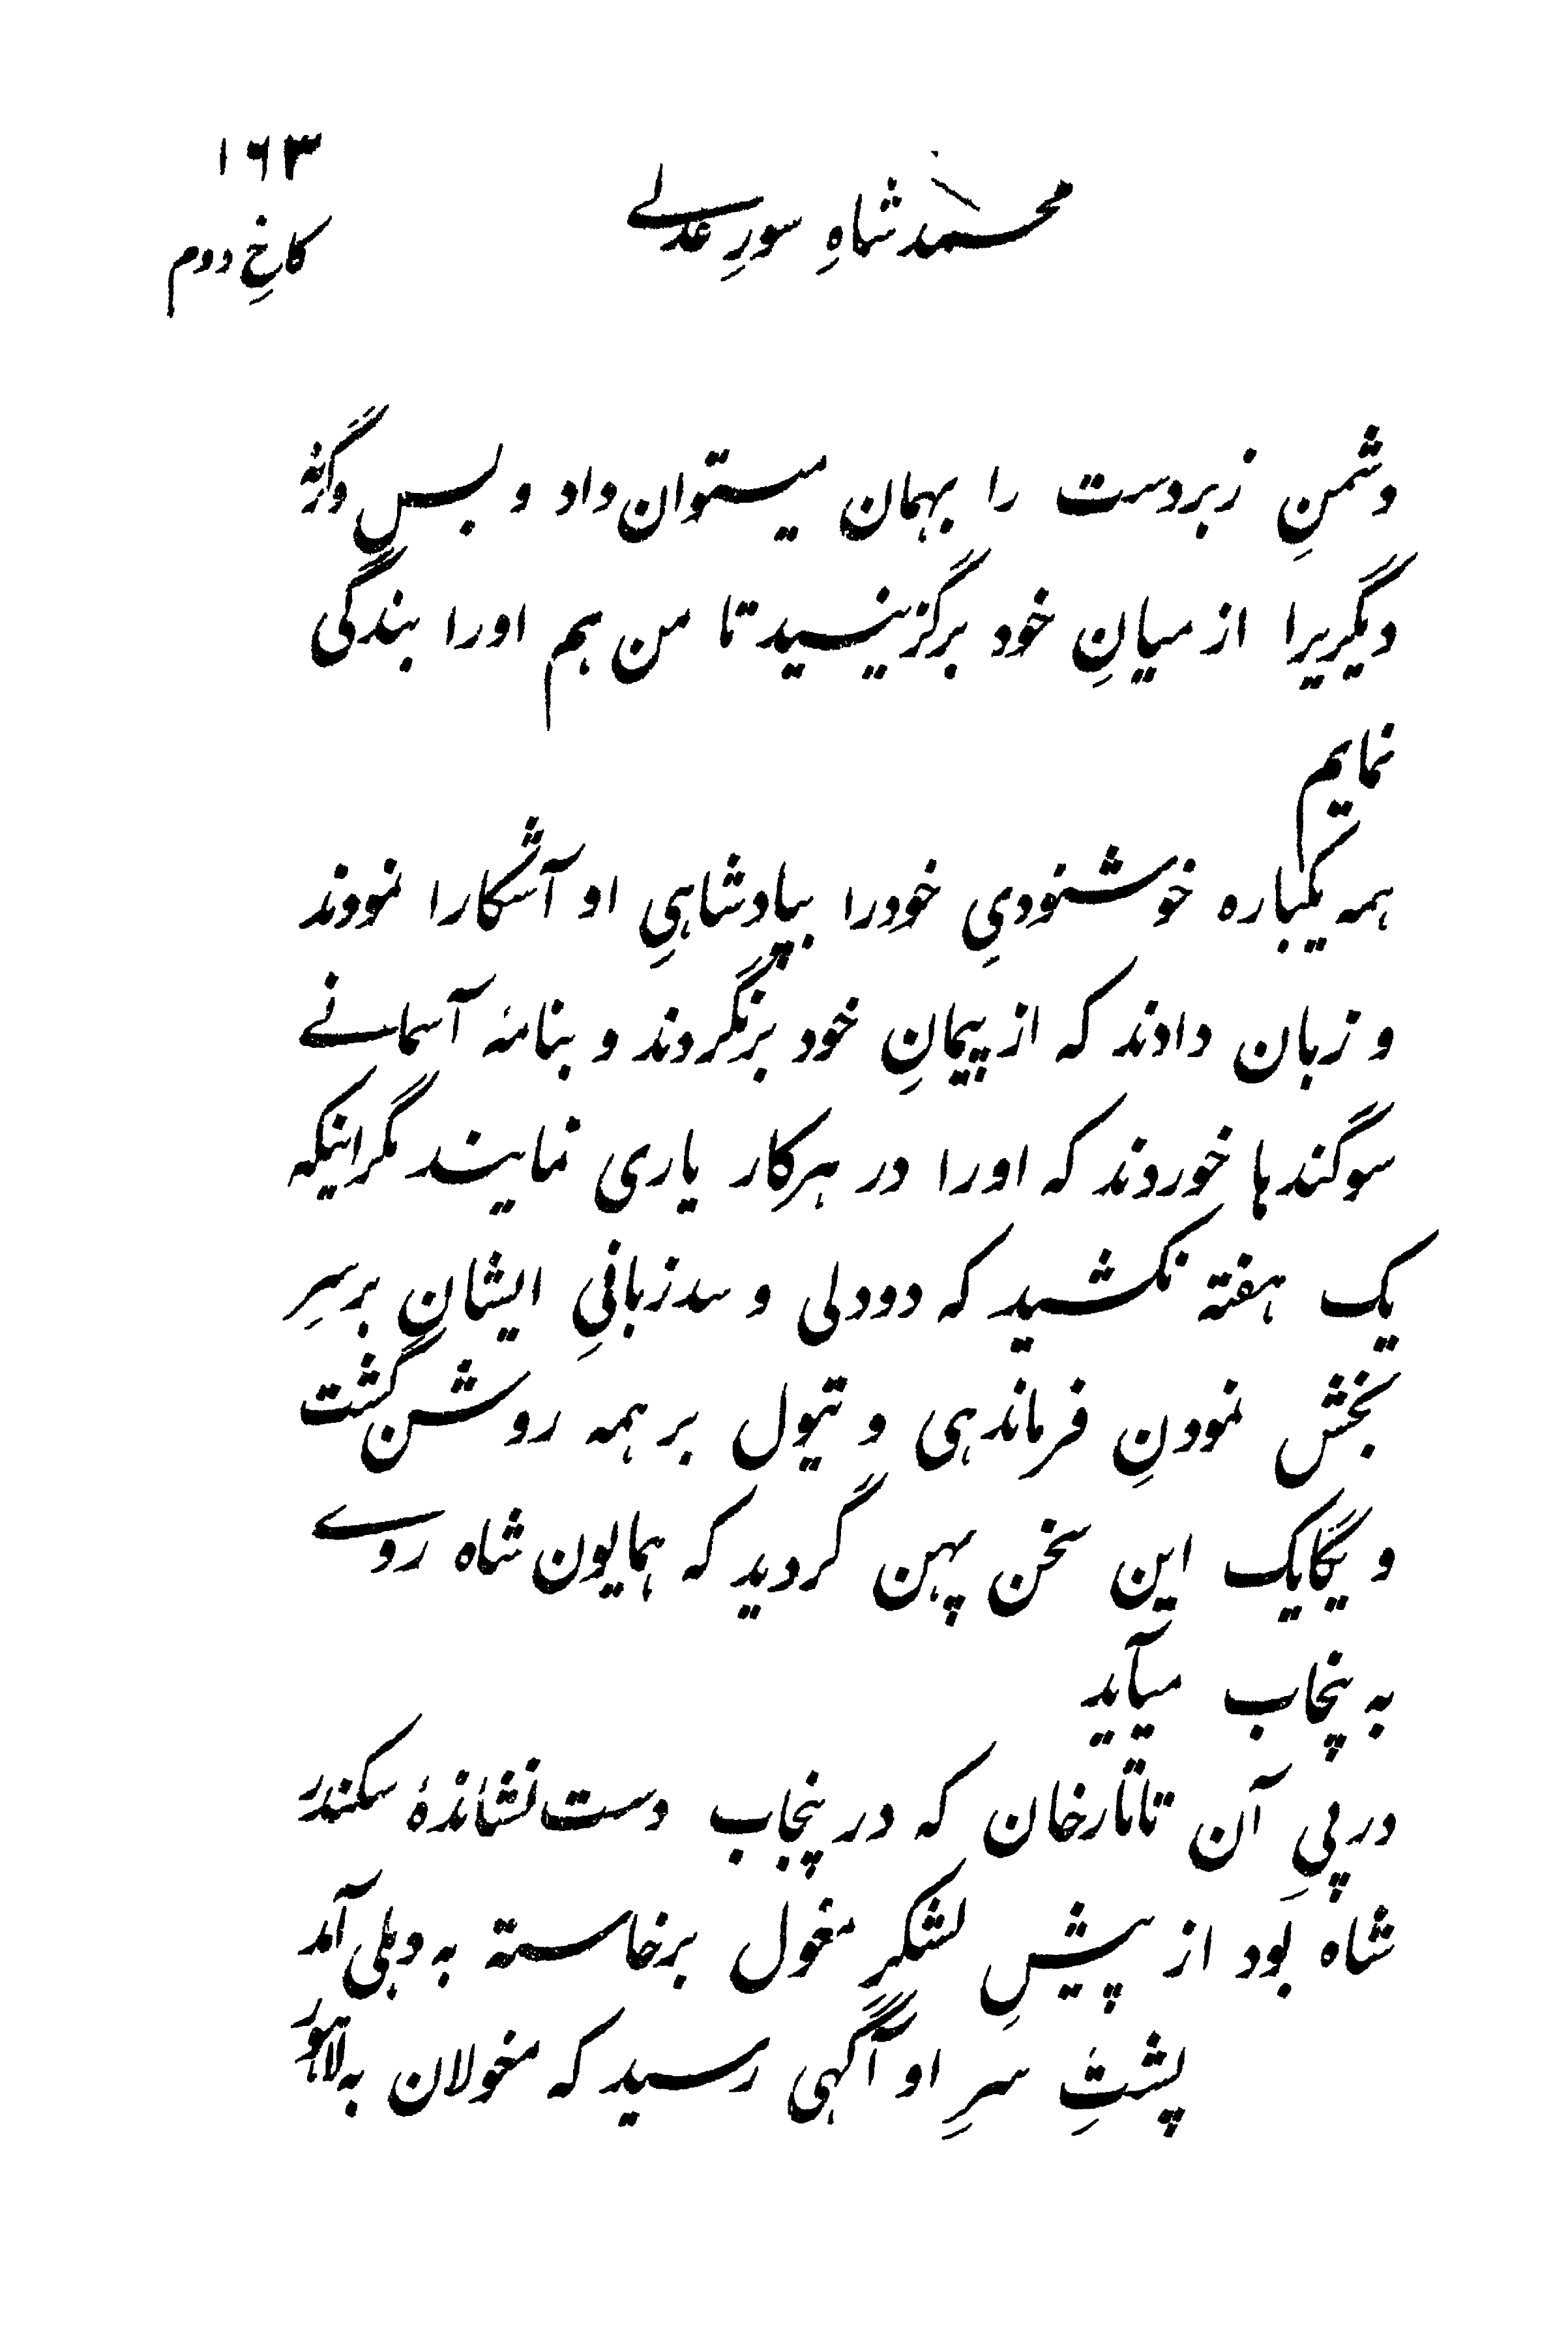 ۱۶۳
محمد شاهِ سورِ عدلے
کاخِ دوم
دشمنِ زبردست را بهمان میتوان داد و بس وگرنه
دیگریرا از میانِ خود برگزینید تا من هم اورا بندگی
نمایم
همه یکباره خوشنودیِ خودرا بپادشاهیِ او آشکارا نمودند
و زبان دادند که از پیمانِ خود برنگردند و بنامهٔ آسمانے
سوگندها خوردند که اورا در هرکار یاری نمایند مگر اینکه
یک هفته نکشید که دودلی و سدزبانیِ ایشان بر سرِ
بخش نمودنِ فرماندهی و تیول بر همه روشن گشت
و یکایک این سخن پهن گردید که همایون شاه روے
به پنجاب میآید
در پیِ آن تاتارخان که در پنجاب دست نشاندهٔ سکندر
شاه بود از پیشِ لشکرِ مغول برخاسته به دهلی آمد
پشتِ سرِ او آگهی رسید که مغولان به لاهور